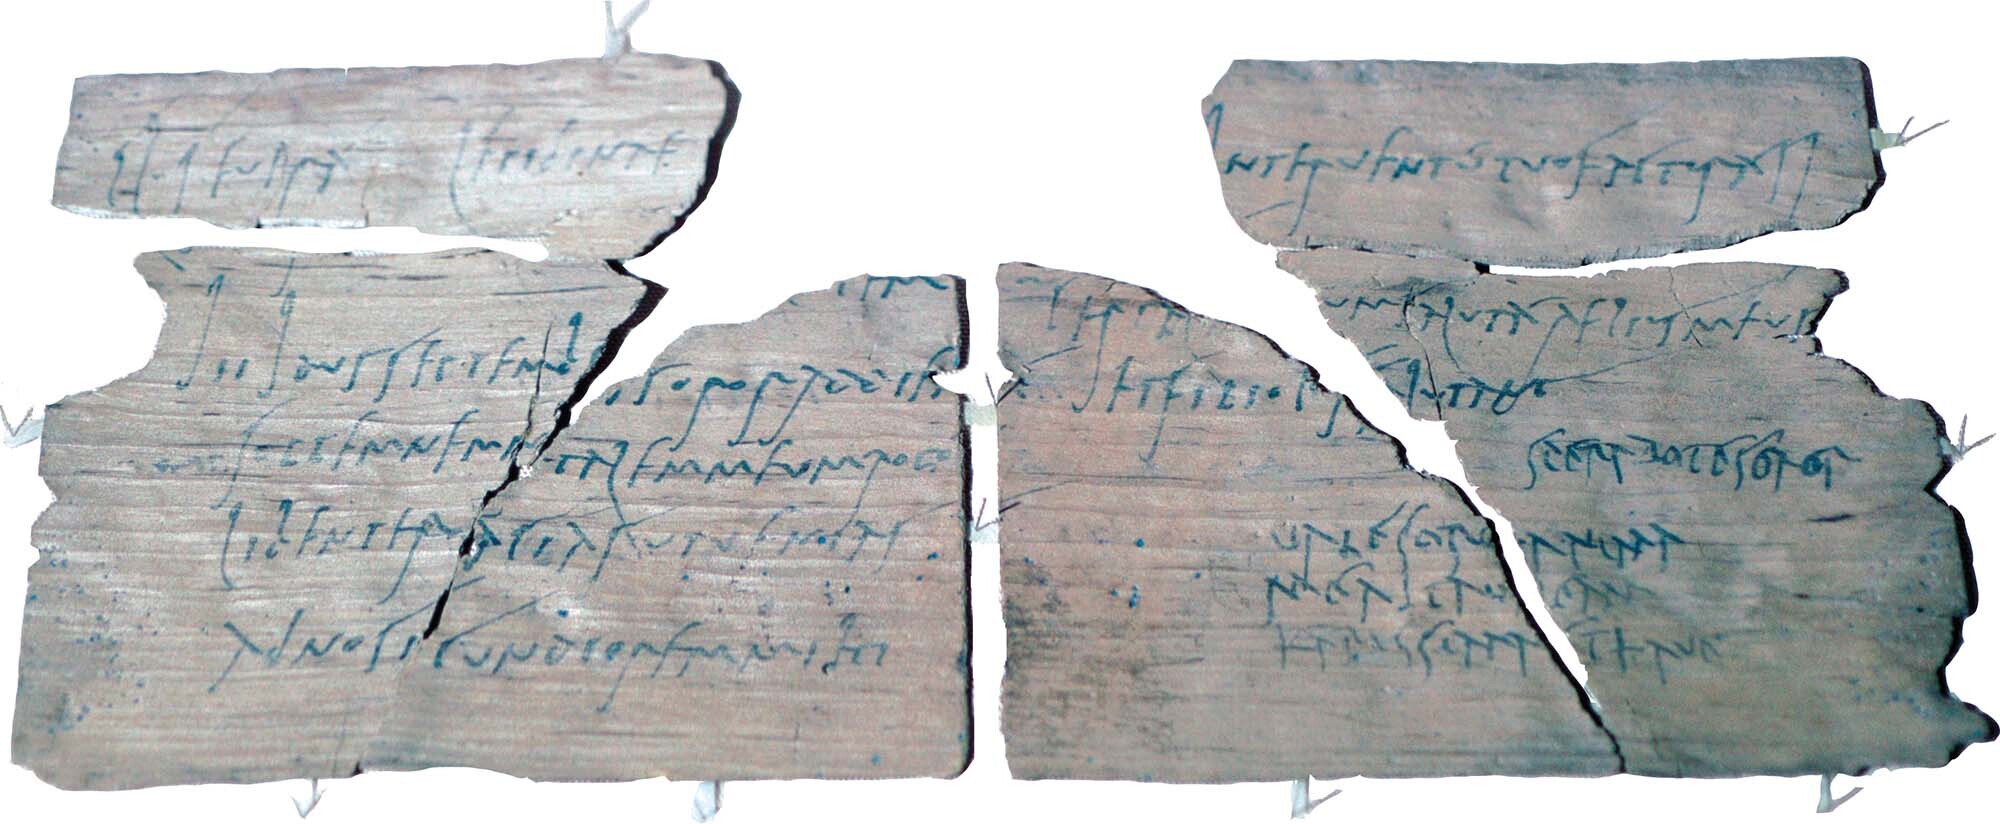 Cl · Seuerá Lepidinae
tem
iii Idus Septembr s soror ad diem
sollemnem natalem meum rogó
libenter faciás ut uenias
ad nos iucundiorem mihi
interuentú tuo facturá si
Cerial uum salutá Aelius meus
et filiolus salutant
sperabo te soror
uale soror anima
mea ita ualeam
karissima et haue